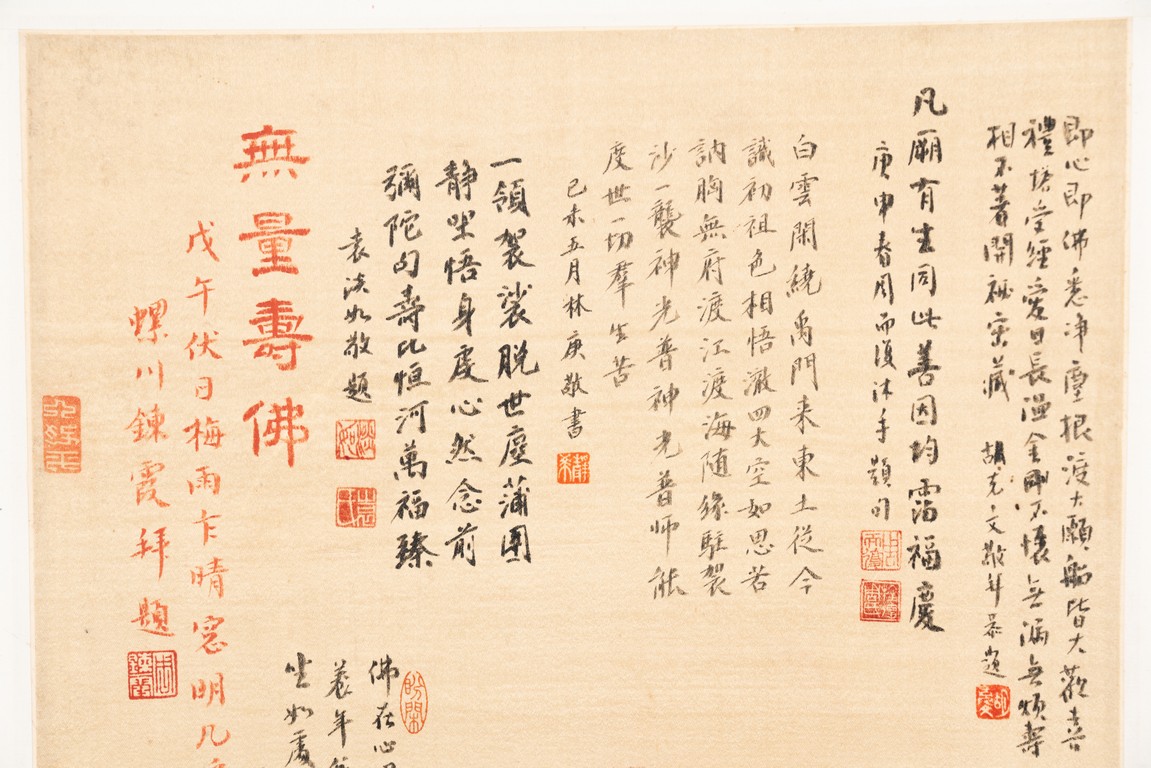 即心即佛悉淨塵根渡大願船皆大歡喜
禮塔堂經愛日長溫金剛不懷無漏無煩壽
相不著開祕密藏
胡克文敬拜恭題
凡厥有生同此善因均霑福慶
庚申春周而復沐手題句
白雲閑繞禹門来東土從今
識初祖色相悟澈四大空如思若
訥胸無府渡江渡海随緣駐袈
沙一襲神光普神光普師能
度世一切羣生苦
己未五月林庚敬書
一領袈裟脱世塵蒲團
靜坐悟身處心然念前
彌陀句壽比恒河萬福臻
袁淡如敬題
無量壽佛
戊午伏日梅雨乍晴窓明几
螺川鍊霞拜題
佛在心
養年
坐如處